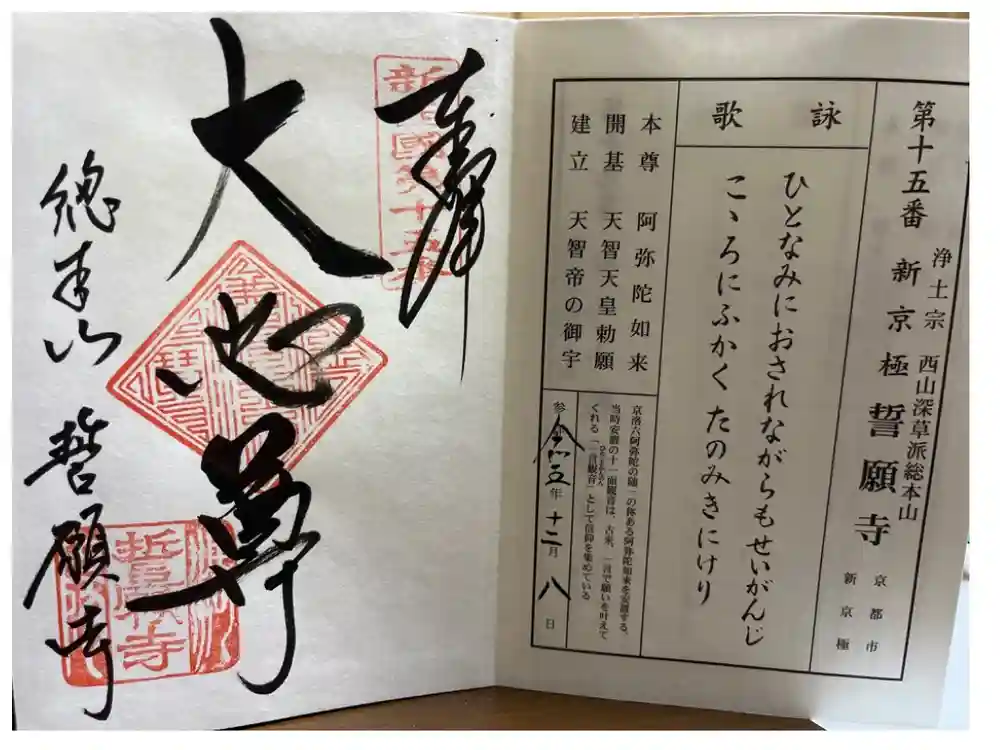 第十五番
浄土宗 西山深草派総本山
新京極 誓願寺
京都市
新京極
詠歌
ひとなみにおされながらもせいがんじ
こゝろにふかく たのみきにけり
本尊 阿弥陀如来
開基 天智天皇勅願
建立 天智帝の御宇
京洛六阿弥陀の随一の称ある阿弥陀如来を安置する。
当時安置の十一面観音は、古来、一言で願いを叶えて
くれる「一言観音」として信仰を集めている
年 十二月 八日
奉拝
大悲尊
總本山 誓願寺
新西國第十五番
誓願寺